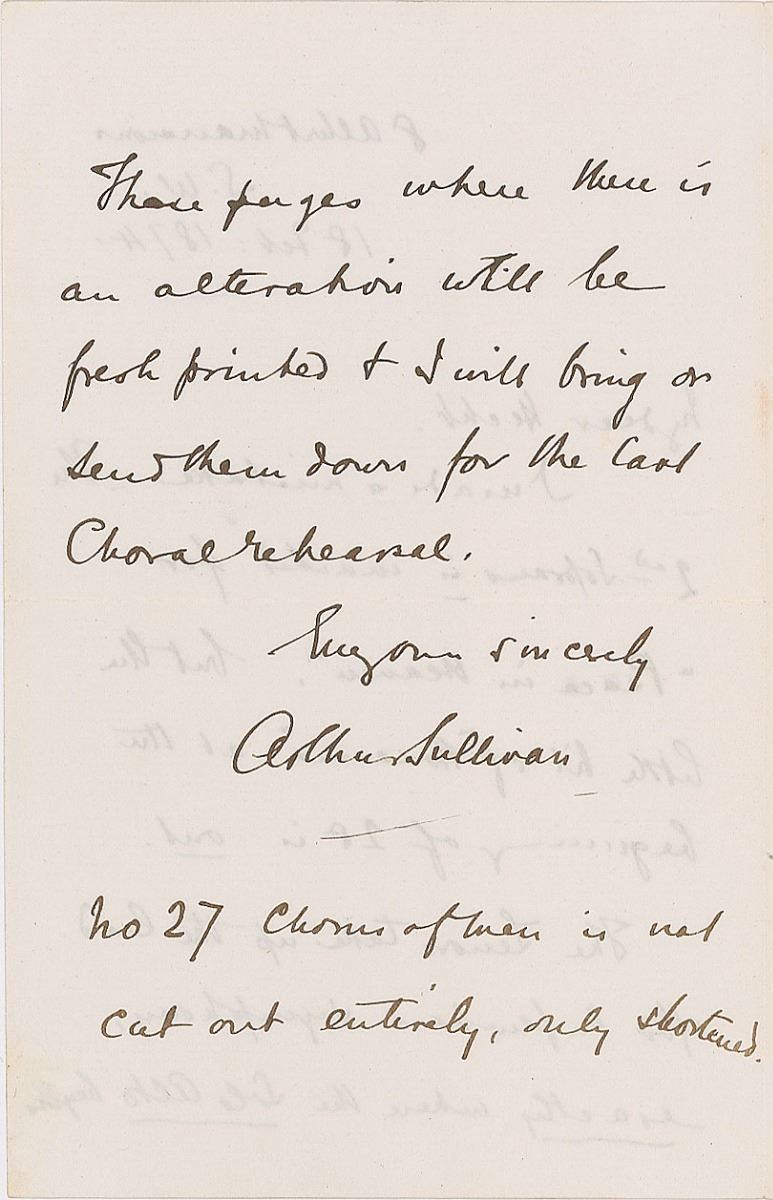 Those pages where there is
an alteration will be
fresh printed & I will bring or
send them down for the last
Choral rehearsal.
Ever yours sincerely
Arthur Sullivan
No 27 Chorus of Men is not
cut out entirely, only shortened.